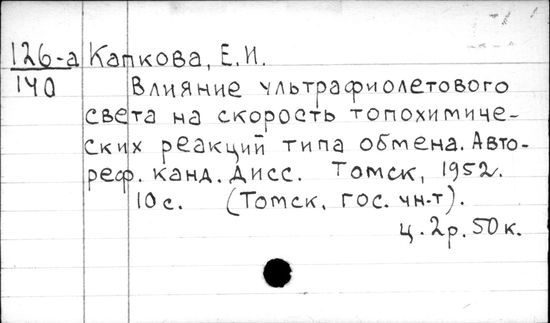 126-а Капкова, Е.И.
140 Влияние ультрафиолетового
света на скорость топохимиче-
ских реакций типа обмена. Авто-
реф. канд. дисс. Томск, 1952.
10 с. (Томск. гос. ун-т).
ц. 2р. 50к.